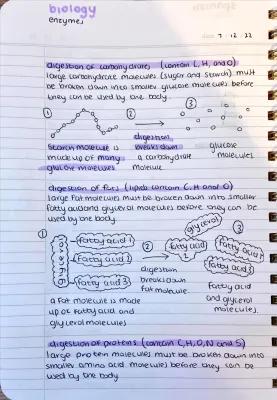 biology
enzymes
date 7.12.22
digestion of carbohydrates (contain C, H, and O)
large carbohydrate molecules (sugar and starch) must
be broken down into smaller glucose molecules before
they can be used by one body.
① ② ③
Starch molecule is
made up of many
glucose molecules
digestion
breaks down
a carbohydrate
molecule
glucose
molecules
digestion of fats (lipids contain C, H and O)
large fat molecules must be broken down into smaller
fatty acid and glycerol molecules before they can be
used by one body.
①
glycerol
fatty acid 1
fatty acid 2
fatty acid 3
a fat molecule is made
up of fatty acid and
glycerol molecules
②
digestion
breaks down
fat molecule
③
glycerol
fatty acid
fatty acid
fatty acid 3
fatty acid
and glycerol
molecules.
digestion of proteins (contain C, H, O, N and S)
large protein molecules must be broken down into
smaller amino acid molecules before they can be
used by one body